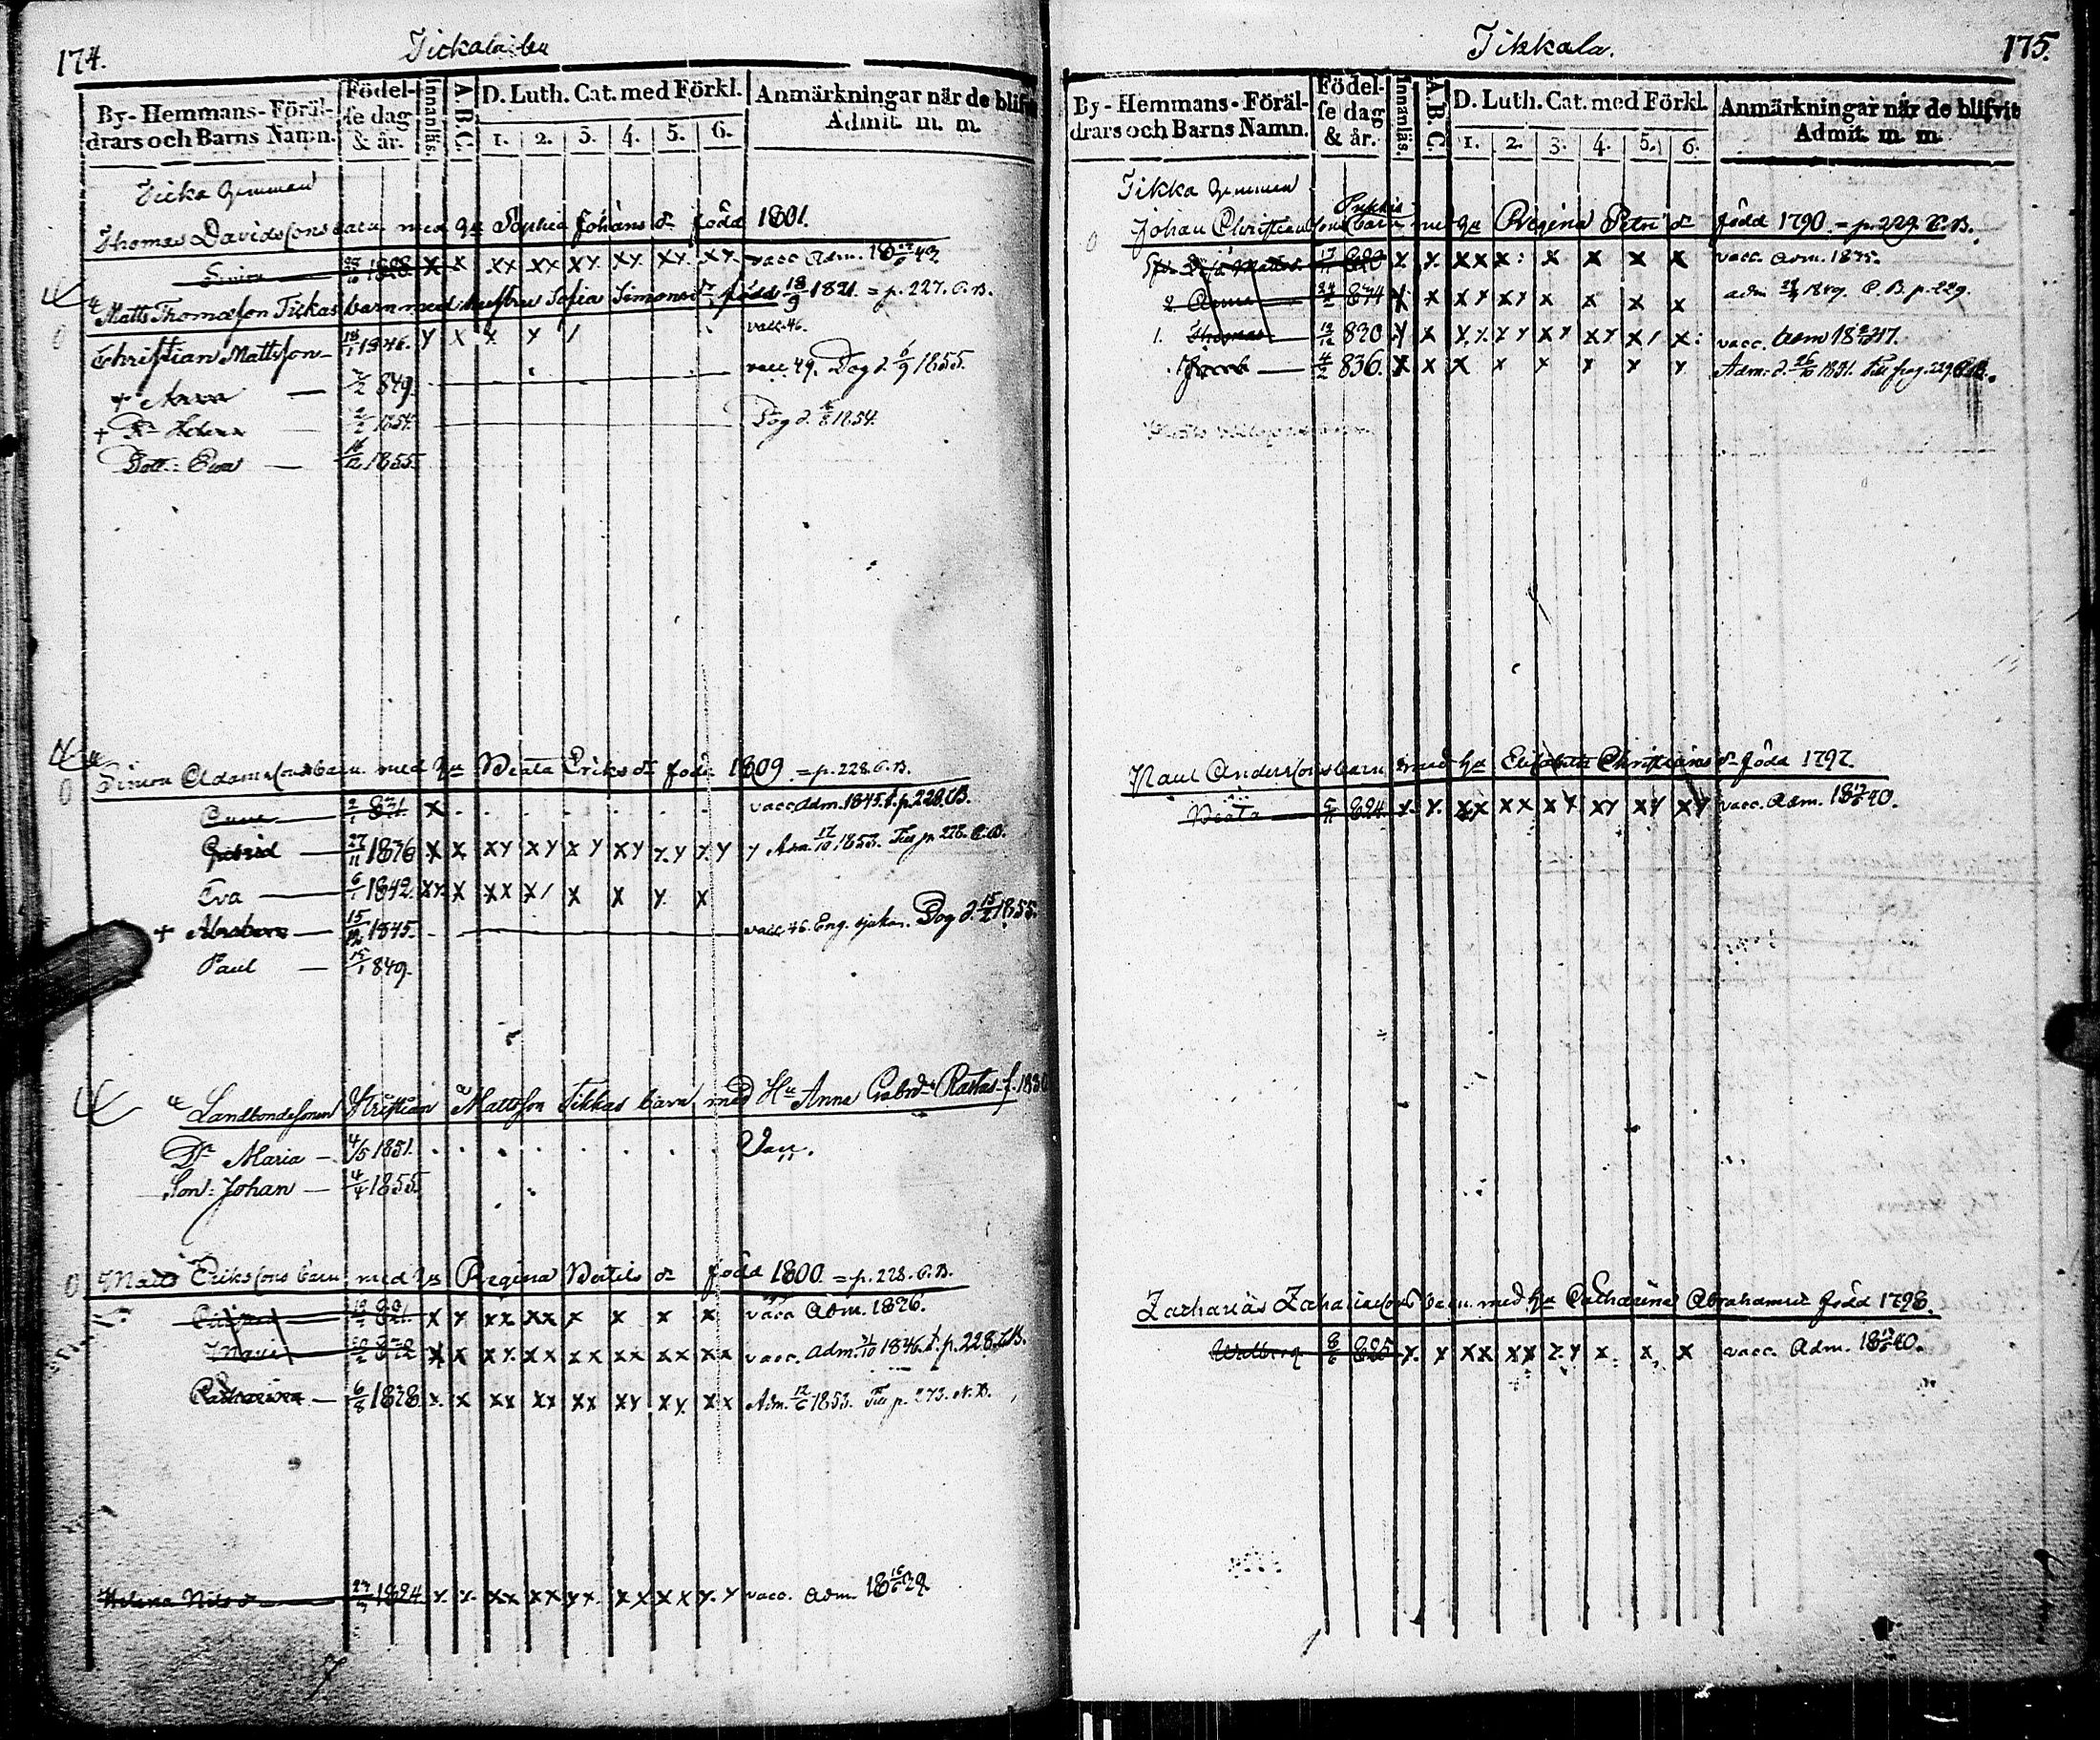 174.
Tickala by
By-Hemmans-Föräl-
drars och Barns Namn.
Födel-
se dag
& år.
Innanläs.
A.B.C.
D. Luth. Cat. med Förkl.
1. 2. 3. 4. 5. 6.
Anmärkningar när de blifvit
Admit. m. m.
Ticka Hemman
Thomas Davidssons barn med hu Sophia Johans dr född 1801.
Simon 1828 x x xx xx xy xy xy xy vacc Adm. 1843
Matts Thomasson Tickas barn med hustru Sofia Simonsdr född 18/9 1821. = p. 227. C.B.
Christian Mattsson 18/1 1846. y x x y / vacc. 46.
+ Anna 2/2 849. vacc 49. Dog d. 6/9 1855.
+ Dr Helena 1854. Dog d. 1854.
Dott: Eva 16/12 1855.
Simon Adamssons barn med hu Beata Eriks dr född 1809. = p. 228. C.B.
Anna 2/1 831. x vacc Adm. 1845. t. p. 228. CB.
27/11 1836 x x xy xy xy xy y.y y.y y Adm. 17/10 1853. Till p. 228. C.B.
Eva 6/1 1842. xx x xx x/ x x y. x
+ Abraham 15/12 1845. vacc. 46. Eng. sjukan. Dog d. 15/2 1855.
Paul 15/1 849.
Landbondesonen Kristian Mattsson Tikkas barn med Hu Anna Gabrdr Rastas f. 1830
Dr Maria 4/5 1851. Vacc.
Son: Johan 4/4 1855.
Matts Erikssons barn med hu Regina Bertils dr född 1800. = p. 228. C.B.
821. x y xx xx x x x x vacc Adm. 1836.
Maria 832 x x xy. xx xx xx xx xx vacc. Adm. 1846. t. p. 228. CB.
Catharina 6/8 1838 x. x xx xx xx xy xy. xx Adm. 12/6 1853. Till p. 273. N.B.
Helena Nils dr 1824 y. y. xx xx yx. xx xx y.y vacc. Adm. 1839
Tikkala.
175.
By-Hemmans-Föräl-
drars och Barns Namn.
Födel-
se dag
& år.
Innanläs.
A.B.C
D. Luth. Cat. med Förkl.
1. 2. 3. 4. 5. 6.
Anmärkningar när de blifvit
Admit. m. m.
Tikka Hemman
Johan Christianssons barn med hu Regina Petri dr född 1790. = p. 229. C.B.
17/11 820 x x. xx x: x x x x vacc. Adm. 1835.
2 Anna 24/2 834 x x xy xy x x x x adm 1849. C.B. p. 229.
1. Thomas 12/12 830 y x x.y. xy xy xy x/ x: vacc. Adm 1847.
Jacob 4/2 836. x x x x x x x y Adm. d. 26/10 1851. Till pag. 229 C.B.
Paul Anderssons barn med hu Elisabeth Christians dr född 1797.
Beata 824. y. y. xx xx xy xy xy xy vacc. Adm. 1840.
Zacharias Zachariassons barn med hu Catharina Abrahamsdr född 1798.
Walborg 8/6 825 x. x xx xx x.y x. x, x vacc. Adm. 1840.